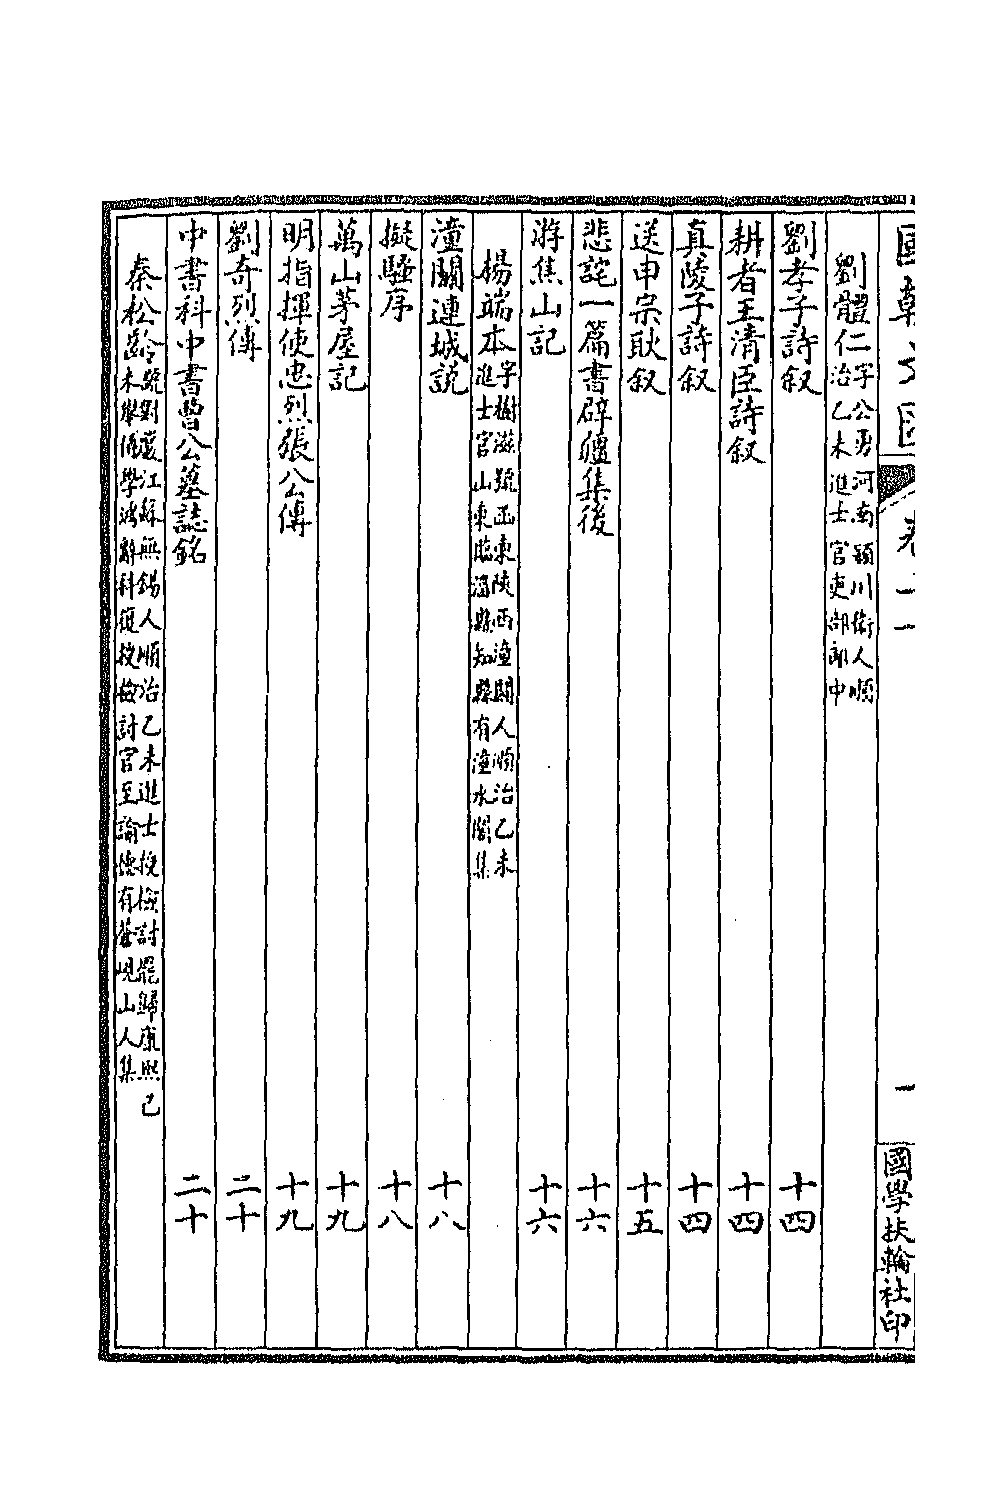 國朝文匯 卷十一 一 國學扶輪社印
劉體仁 字公勇河南潁川衛人順
治乙未進士官吏部郎中
劉孝子詩叙 十四
耕者王清臣詩叙 十四
真陵子詩叙 十四
送申宗耿叙 十五
悲詫一篇書辟疆集後 十六
游焦山記 十六
楊端本 字樹滋號函東陝西潼關人順治乙未
進士官山東臨淄縣知縣有潼水閣集
潼關連城說 十八
擬騷序 十八
萬山茅屋記 十九
明指揮使忠烈張公傳 十九
劉奇烈傳 二十
中書科中書曹公墓誌銘 二十
秦松齡 號對巖江蘇無錫人順治乙未進士授檢討罷歸康熙己
未舉博學鴻辭科復授檢討官至諭德有蒼峴山人集